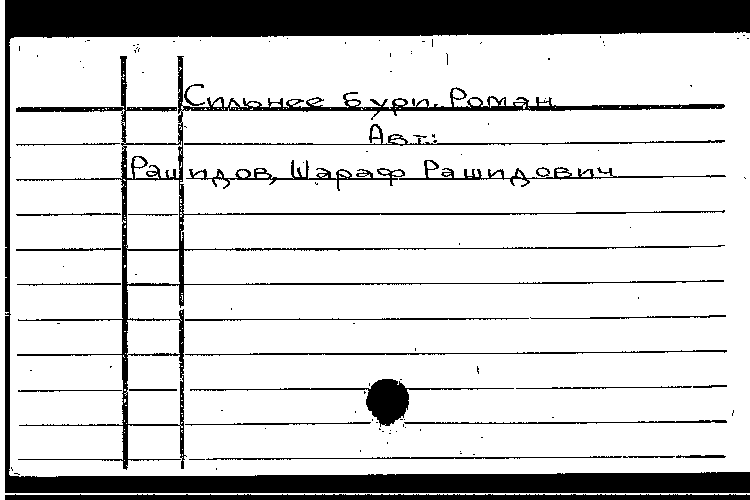 Сильнее бури. Роман
Авт.:
Рашидов, Шараф Рашидович